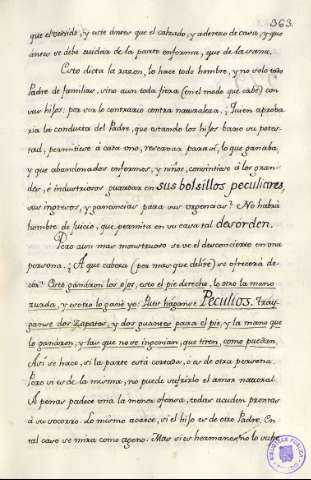 363.
que el vestido, y este ántes que el calzado, y aderezo de casa, y que
ántes se debe cuidar de la parte enferma, que de la sana.
Esto dicta la razon, lo hace todo hombre, y no solo todo
Padre de familias, sino aun toda fiera (en el modo que cabe) con
sus hijos: por ser lo contrario contra naturaleza. ¿Quien aproba
ria la conducta del Padre, que estando los hijos baxo su potes-
tad, permitiese á cada uno, reservar para sí, lo que ganaba,
y que abandonados enfermos, y niños, consintiese á los gran-
des, é industriosos guardar en sus bolsillos peculiares,
sus ingresos, y ganancias para sus urgencias? No habrá
hombre de juicio, que permita en su casa tal desórden.
Pero aun mas monstruoso se ve el desconcierto en una
persona. ¿A que cabeza (por mas que delíre) se ofreceria de-
cir? Esto ganáron los ojos, esto el pie derecho, lo otro la mano
zurda, y esotro lo gané yo: Pues háganse Peculios. Tray-
ganse dos Zapatos, y dos guantes para el pie, y la mano que
lo ganáron, y las que no se ingenian, que tiren, como puedan.
Así se hace, si la parte está cortada, o es de otra persona.
Pero si es de la misma, no puede sufrirlo el amor natural.
A penas padece una la menor ofensa, todas acuden prontas
á su socorro. Lo mismo acaece, si el hijo es de otro Padre. En
tal caso se mira como ageno. Mas si es hermano, no lo sufre
BIBLIOTECA PUBLICA